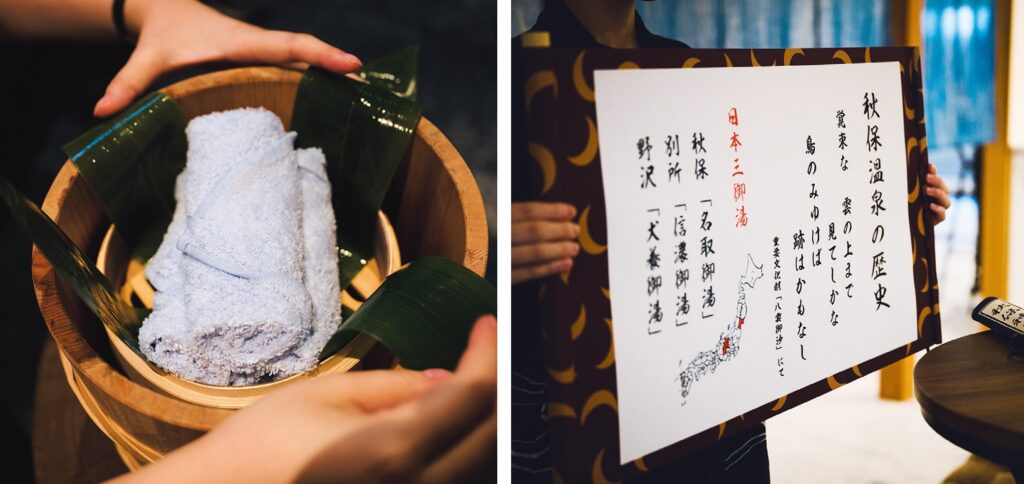 秋保温泉の歴史
覚束な 雲の上まで
見てしかな
鳥のみゆけば
跡はかもなし
重要文化財「八雲御抄」にて
日本三御湯
秋保「名取御湯」
別所「信濃御湯」
野沢「犬養御湯」